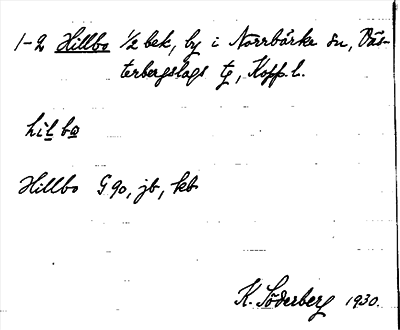 1-2 Hillbo ½ bek, by i Norrbärke sn, Väs-
terbergslags tg, Kopp. l.
hilbo
Hillbo G 90, jb, kb
K. Söderberg 1930.